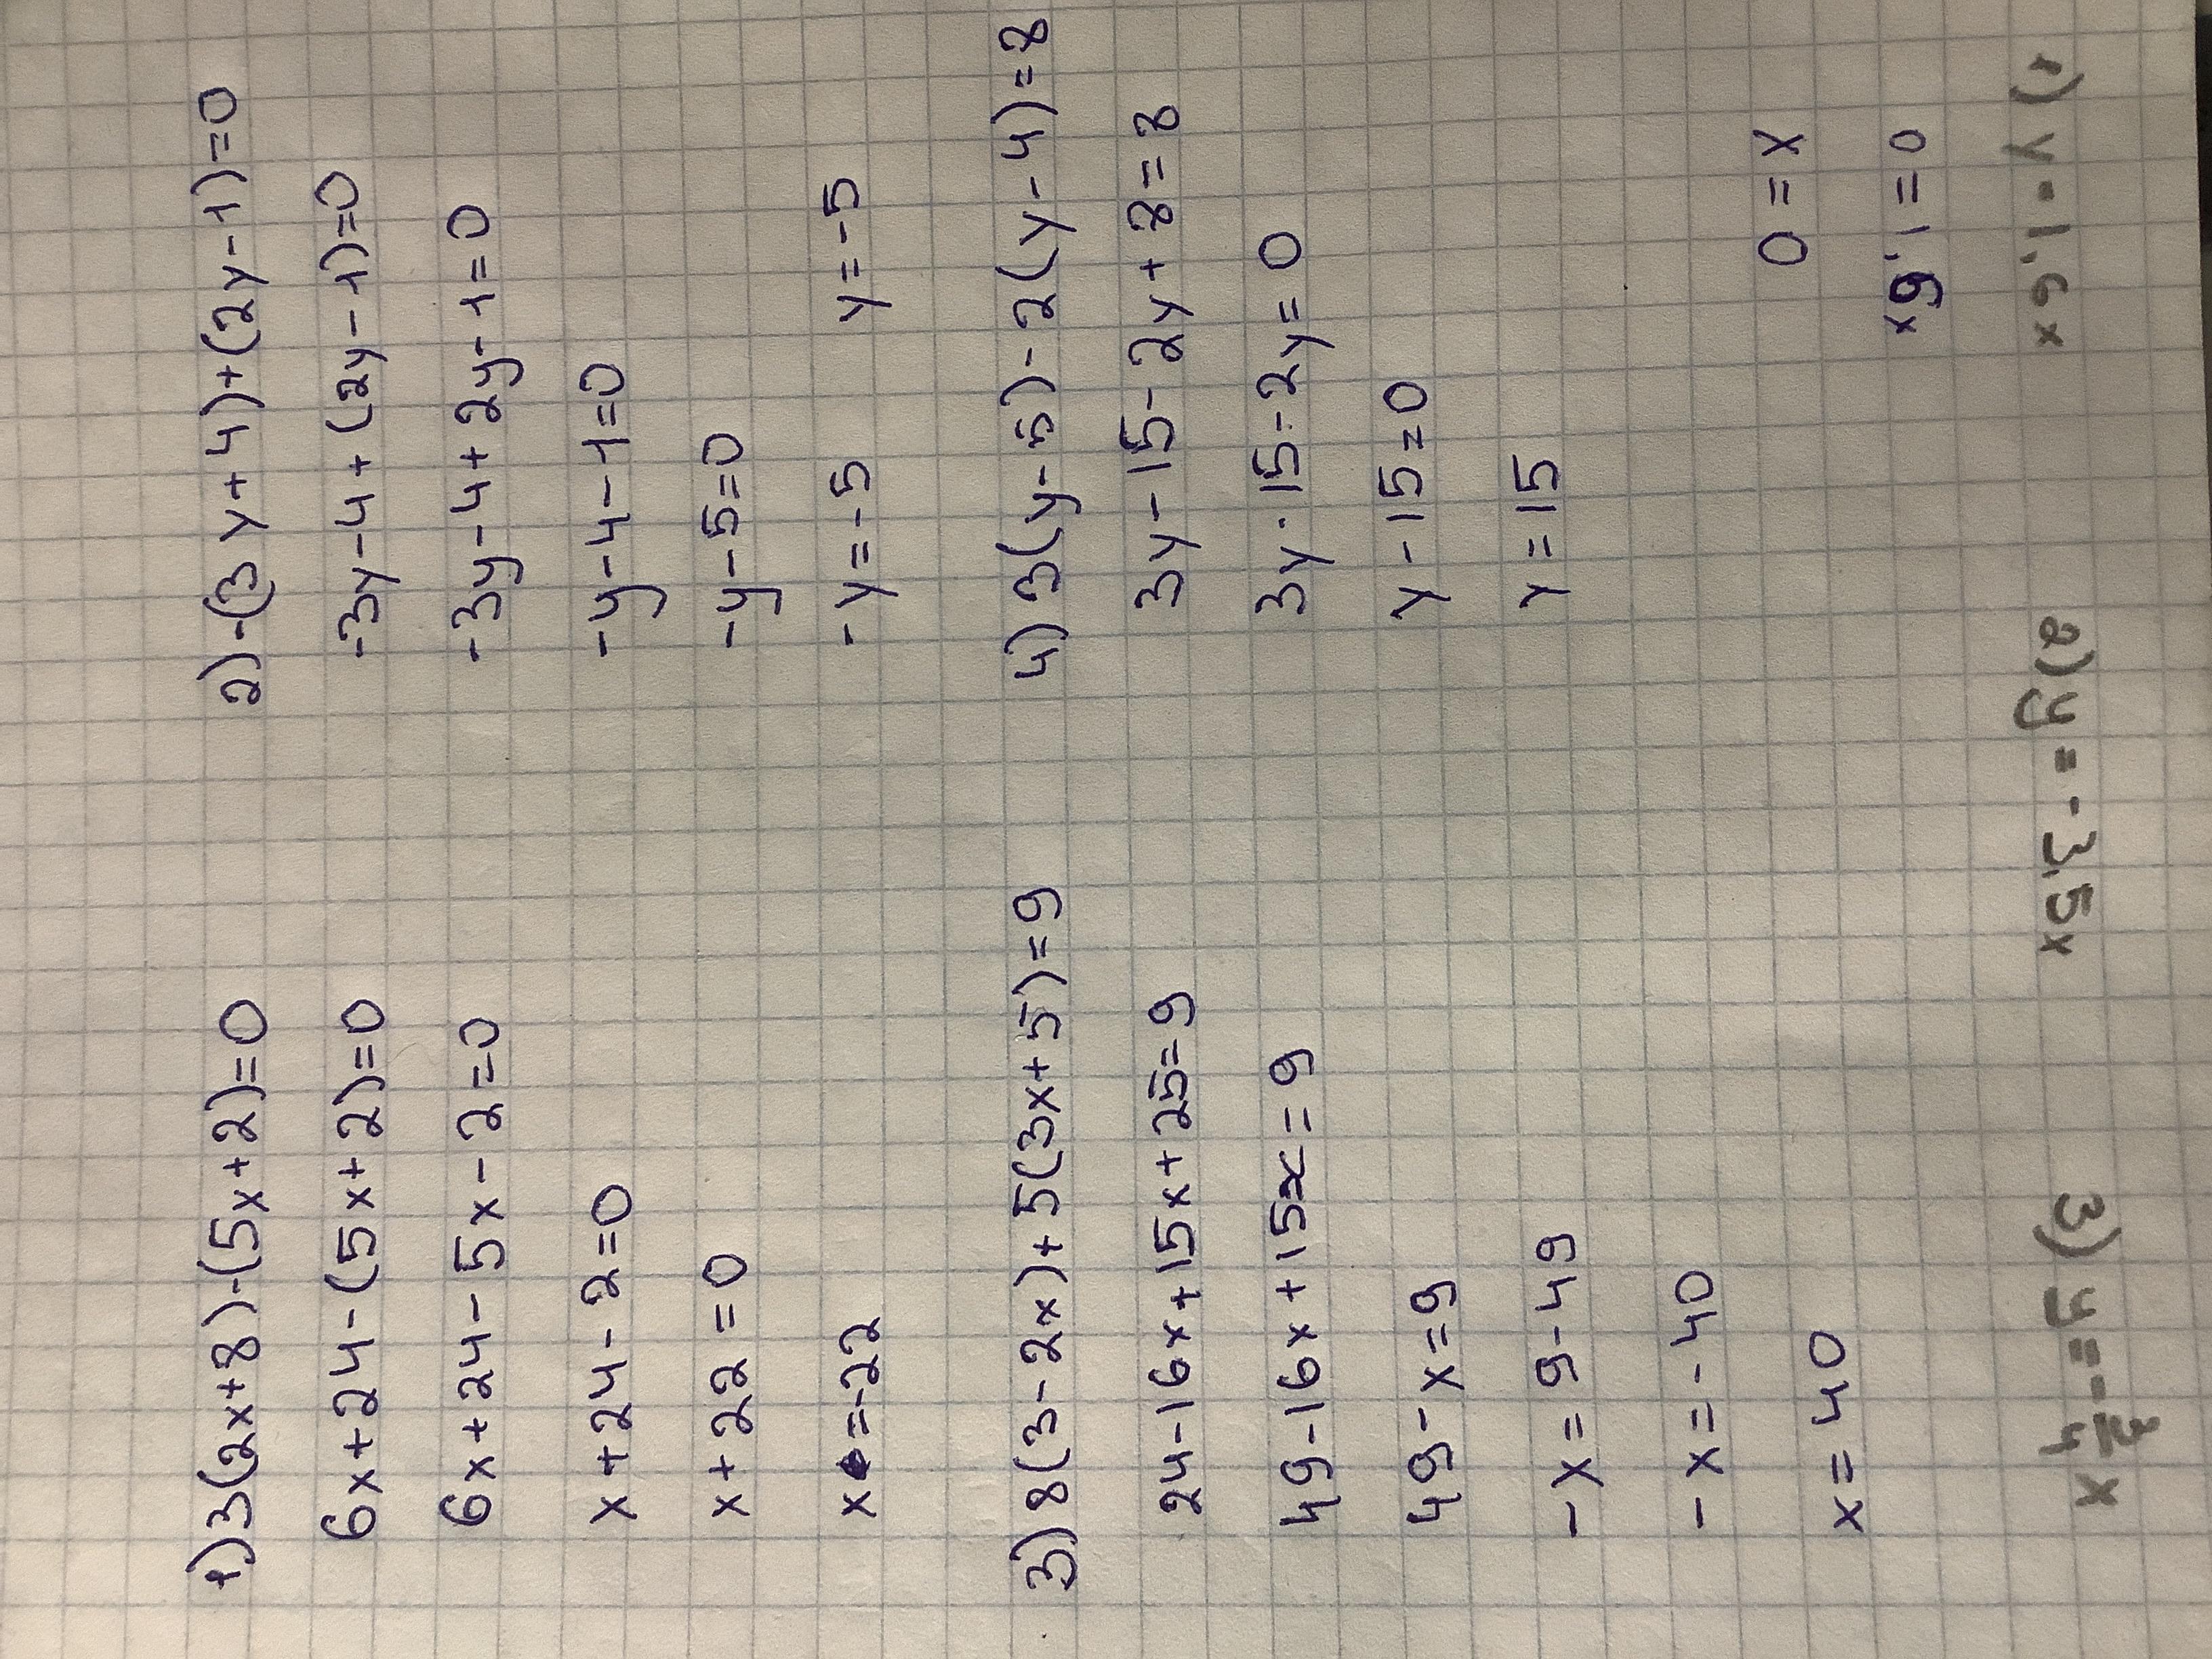 1) 3(2x+8)-(5x+2)=0
6x+24-(5x+2)=0
6x+24-5x-2=0
x+24-2=0
x+22=0
x=-22
2) -(3y+4)+(2y-1)=0
-3y-4+(2y-1)=0
-3y-4+2y-1=0
-y-4-1=0
-y-5=0
-y=-5 y=-5
3) 8(3-2x)+5(3x+5)=9
24-16x+15x+25=9
49-16x+15x=9
49-x=9
-x=9-49
-x=-40
x=40
4) 3(y-5)-2(y-4)=8
3y-15-2y+8=8
3y-15-2y=0
y-15=0
y=15
0=x
1,6x=0
1) y-1,6x
2) y=-3,5x
3) y=-\frac{3}{4}x